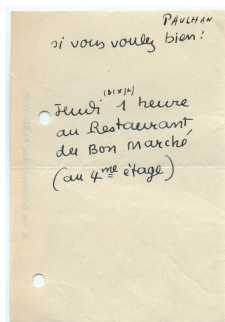 PAULHAN
si vous voulez bien :
Jeudi 1 heure
au Restaurant
du Bon Marché
(au 4me étage)